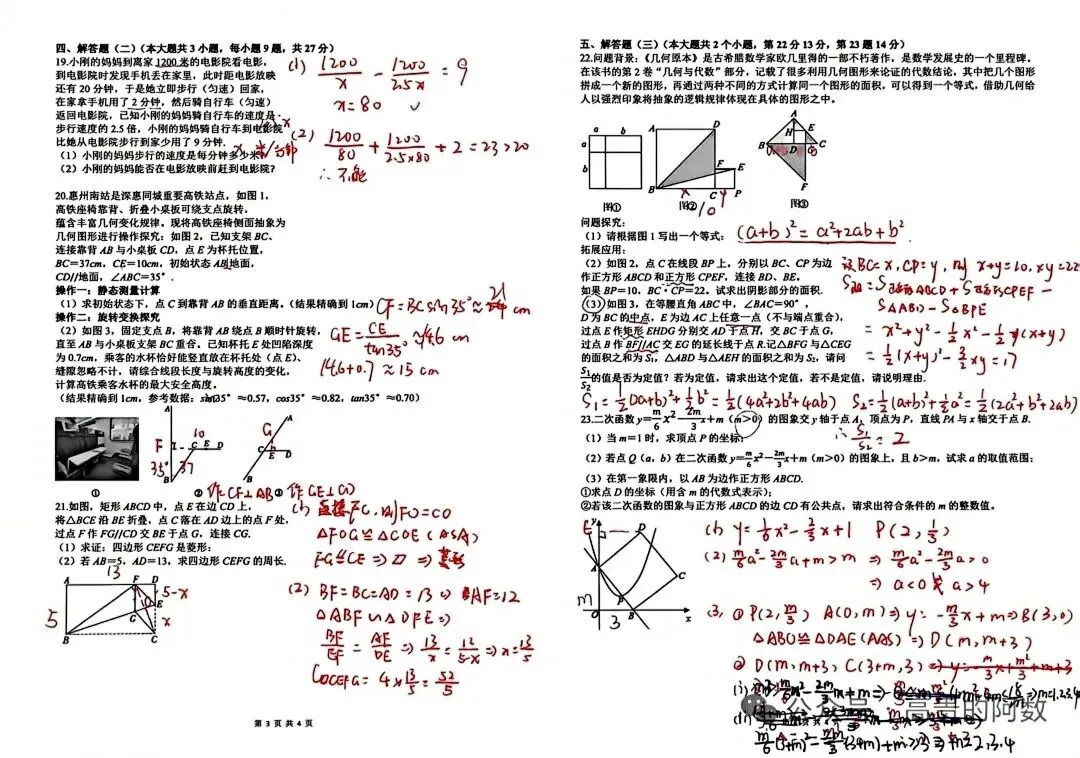 四、解答题（二）（本大题共 3 小题，每小题 9 题，共 27 分）
19.小刚的妈妈到离家 1200 米的电影院看电影，
到电影院时发现手机丢在家里，此时距电影放映
还有 20 分钟，于是她立即步行（匀速）回家，
在家拿手机用了 2 分钟，然后骑自行车（匀速）
返回电影院，已知小刚的妈妈骑自行车的速度是
步行速度的 2.5 倍，小刚的妈妈骑自行车到电影院
比她从电影院步行到家少用了 9 分钟.
（1）小刚的妈妈步行的速度是每分钟多少米？
（2）小刚的妈妈能否在电影放映前赶到电影院？
(1) 1200/x - 1200/2.5x = 9
x = 80
(2) 1200/80 + 1200/2.5×80 + 2 = 23 > 20
∴ 不能
20.惠州南站是深惠同城重要高铁站点，如图 1，
高铁座椅靠背、折叠小桌板可绕支点旋转，
蕴含丰富几何变化规律，现将高铁座椅侧面抽象为
几何图形进行操作探究：如图 2，已知支架 BC、
连接靠背 AB 与小桌板 CD，点 E 为杯托位置，
BC=37cm，CE=10cm，初始状态 AB⊥地面，
CD//地面，∠ABC=35°.
操作一：静态测量计算
（1）求初始状态下，点 C 到靠背 AB 的垂直距离.（结果精确到 1cm）
CF=BC sin35°≈21 cm
操作二：旋转变换探究
（2）如图 3，固定支点 B，将靠背 AB 绕点 B 顺时针旋转，
直至 AB 与小桌板支架 BC 重合，已知杯托 E 处凹陷深度
为 0.7cm，乘客的水杯恰好能竖直放在杯托处（点 E）、
缝隙忽略不计，请综合线段长度与旋转高度的变化，
计算高铁乘客水杯的最大安全高度。
（结果精确到 1cm，参考数据：sin35° ≈0.57，cos35° ≈0.82，tan35° ≈0.70）
GE = CE/tan35° ≈14.6 cm
14.6+0.7 ≈ 15 cm
A
F 10 C E D
35° 37
B
A
G
C E D
B
① ② 作CF⊥AB ③ 作GE⊥CD
21.如图，矩形 ABCD 中，点 E 在边 CD 上，
将△BCE 沿 BE 折叠，点 C 落在 AD 边上的点 F 处，
过点 F 作 FG//CD 交 BE 于点 G，连接 CG.
（1）求证：四边形 CEFG 是菱形；
（2）若 AB=5，AD=13，求四边形 CEFG 的周长.
FO=CO
△FOG≌△COE (ASA)
(2) BF=BC=AD=13 ⇒ AF=12
△ABF∽△DFE ⇒
BF/EF = AF/DE ⇒ 13/x = 12/5-x ⇒ x=13/5
= 4×13/5 = 52/5
13
A F D
5-x
5 G E
x
B C
第 3 页 共 4 页
五、解答题（三）（本大题共 2 个小题，第 22 分 13 分，第 23 题 14 分）
22.问题背景：《几何原本》是古希腊数学家欧几里得的一部不朽著作，是数学发展史的一个里程碑。
在该书的第 2 卷“几何与代数”部分，记载了很多利用几何图形来论证的代数结论，其中把几个图形
拼成一个新的图形，再通过两种不同的方式计算同一个图形的面积，可以得到一个等式，借助几何给
人以强烈印象将抽象的逻辑规律体现在具体的图形之中。
a b
a
b
A D
F E
B x C y P
10
A
H E
B D G C
F
图① 图② 图③
问题探究：
（1）请根据图 1 写出一个等式： (a+b)²=a²+2ab+b²
拓展应用：
（2）如图 2，点 C 在线段 BP 上，分别以 BC、CP 为边
作正方形 ABCD 和正方形 CPEF，连接 BD、BE。
如果 BP=10，BC·CP=22。试求出阴影部分的面积.
设BC=x, CP=y, 则 x+y=10, xy=22
- S△ABD - S△BPE
= x²+y²-½x²-½y(x+y)
= ½(x+y)²-3/2xy=17
（3）如图 3，在等腰直角 ABC 中，∠BAC=90°，
D 为 BC 的中点，E 为边 AC 上任意一点（不与端点重合），
过点 E 作矩形 EHDG 分别交 AD 于点 H，交 BC 于点 G，
过点 B 作 BF//AC 交 EG 的延长线于点 R.记△BFG 与△CEG
的面积之和为 S₁，△ABD 与△AEH 的面积之和为 S₂，请问
S₁/S₂ 的值是否为定值？若为定值，请求出这个定值，若不是定值，请说明理由.
S₁=½(2a+b)²+½b²=½(4a²+2b²+4ab) S₂=½(a+b)²+½a²=½(2a²+b²+2ab)
∴ S₁/S₂ = 2
23.二次函数 y=m/6 x²-2m/3 x+m（m>0）的图象交 y 轴于点 A，顶点为 P，直线 PA 与 x 轴交于点 B.
（1）当 m=1 时，求顶点 P 的坐标；
（2）若点 Q（a，b）在二次函数 y=m/6 x²-2m/3 x+m（m>0）的图象上，且 b>m，试求 a 的取值范围；
（3）在第一象限内，以 AB 为边作正方形 ABCD.
①求点 D 的坐标（用含 m 的代数式表示）；
②若该二次函数的图象与正方形 ABCD 的边 CD 有公共点，请求出符合条件的 m 的整数值。
y
E D
A
C
m P
O 3 B x
(1) y=1/6x²-2/3x+1 P(2, 1/3)
(2) m/6a²-2m/3a+m>m ⇒ m/6a²-2m/3a>0
⇒ a<0 或 a>4
(3) ① P(2, m/3) A(0,m) ⇒ y=-m/3x+m ⇒ B(3,0)
△ABO≌△DAE(AAS) ⇒ D(m, m+3)
② D(m, m+3), C(3+m, 3)
公众号·高贵的阿数